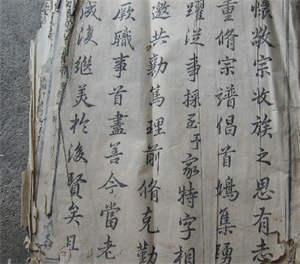 懷敬宗收族之思有志
重脩宗譜倡首鳩集踴
躍從事採至予家特字相
邀共勷篤理前脩克勤
厥職事首盡善今當老
成復繼美於後賢矣且